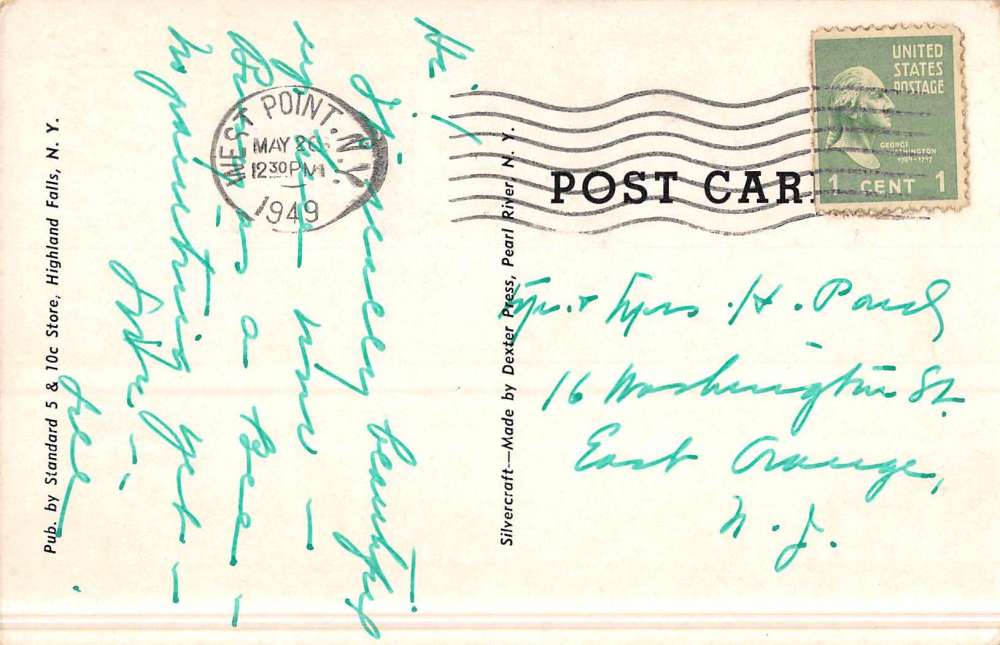 Hi!
really beautiful
up here now —
Busy as a Bee —
no painting yet —
Lee
WEST POINT, N.Y.
MAY 20
12 30 PM
1949
Pub. by Standard 5 & 10c Store, Highland Falls, N. Y.
Silvercraft—Made by Dexter Press, Pearl River, N. Y.
POST CAR
UNITED
STATES
POSTAGE
GEORGE
WASHINGTON
1789-1797
1 CENT 1
Mr. & Mrs. H. Paul
16 Washington St.
East Orange,
N. J.